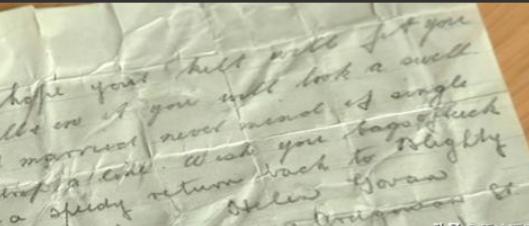 hope your kilt will fit you
in it you will look a swell
married never mind if single
drop a line Wish you bags of luck
a speedy return back to Blighty
Helen Govan
St